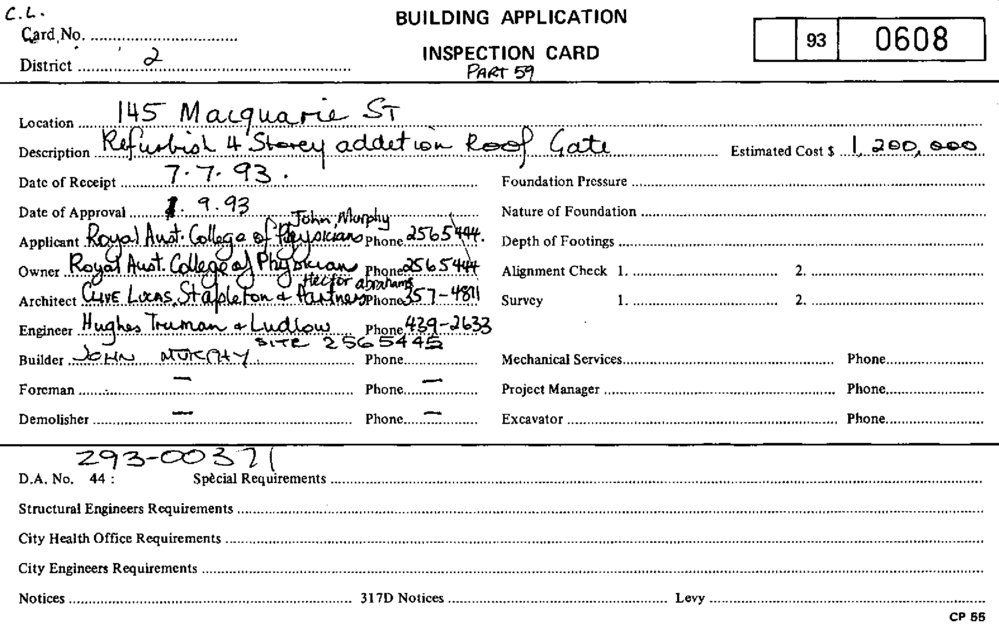 C.L.
BUILDING APPLICATION
Card No.
93 0608
INSPECTION CARD
District 2
PART 59
Location 145 Macquarie ST
Description Refurbish 4 Storey addetion Roof Gate Estimated Cost $ 1,200,000
Date of Receipt 7.7.93. Foundation Pressure
Date of Approval 1.9.93 Nature of Foundation
John Murphy
Applicant Royal Aust. College of Physicians Phone 2565444. Depth of Footings
Owner Royal Aust. College of Physician Phone 2565444 Alignment Check 1. 2.
Hector abrahams
Architect CLIVE LUCAS, Stapleton & Partners Phone 357-4811 Survey 1. 2.
Engineer Hughes Truman & Ludlow Phone 439-2633
SITE 2565445
Builder JOHN MURPHY Phone Mechanical Services Phone
Foreman — Phone — Project Manager Phone
Demolisher — Phone — Excavator Phone
293-00371
D.A. No. 44 : Special Requirements
Structural Engineers Requirements
City Health Office Requirements
City Engineers Requirements
Notices 317D Notices Levy
CP 55